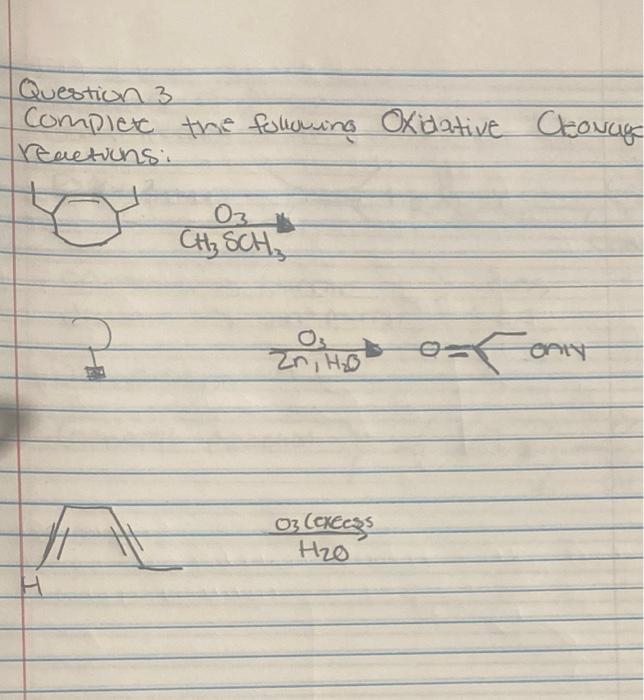 Question 3
Complete the following Oxidative Cleavage
reactions:
O3
CH3SCH3
?
O3
Zn, H2O
O= only
O3 (excess
H2O
H